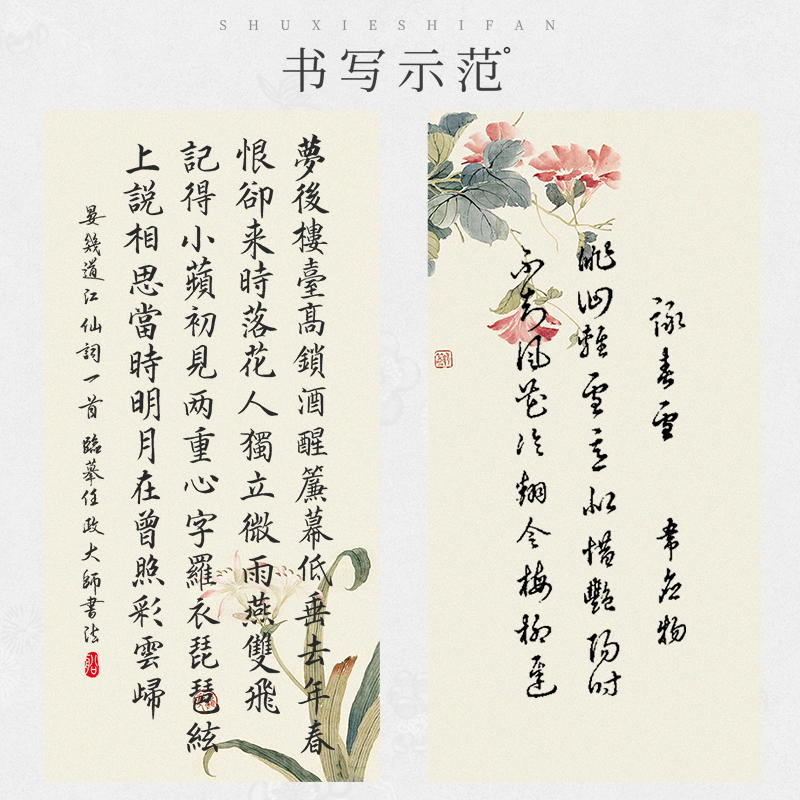 SHUXIESHIFAN
书写示范
夢後樓臺高鎖酒醒簾幕低垂去年春
恨卻来時落花人獨立微雨燕雙飛
記得小蘋初見两重心字羅衣琵琶絃
上説相思當時明月在曾照彩雲歸
晏幾道江仙詞一首 臨摹任政大師書法
詠春雪 韋應物
徘徊輕雪意似惜艷陽時
不風花冷翻令梅柳遲